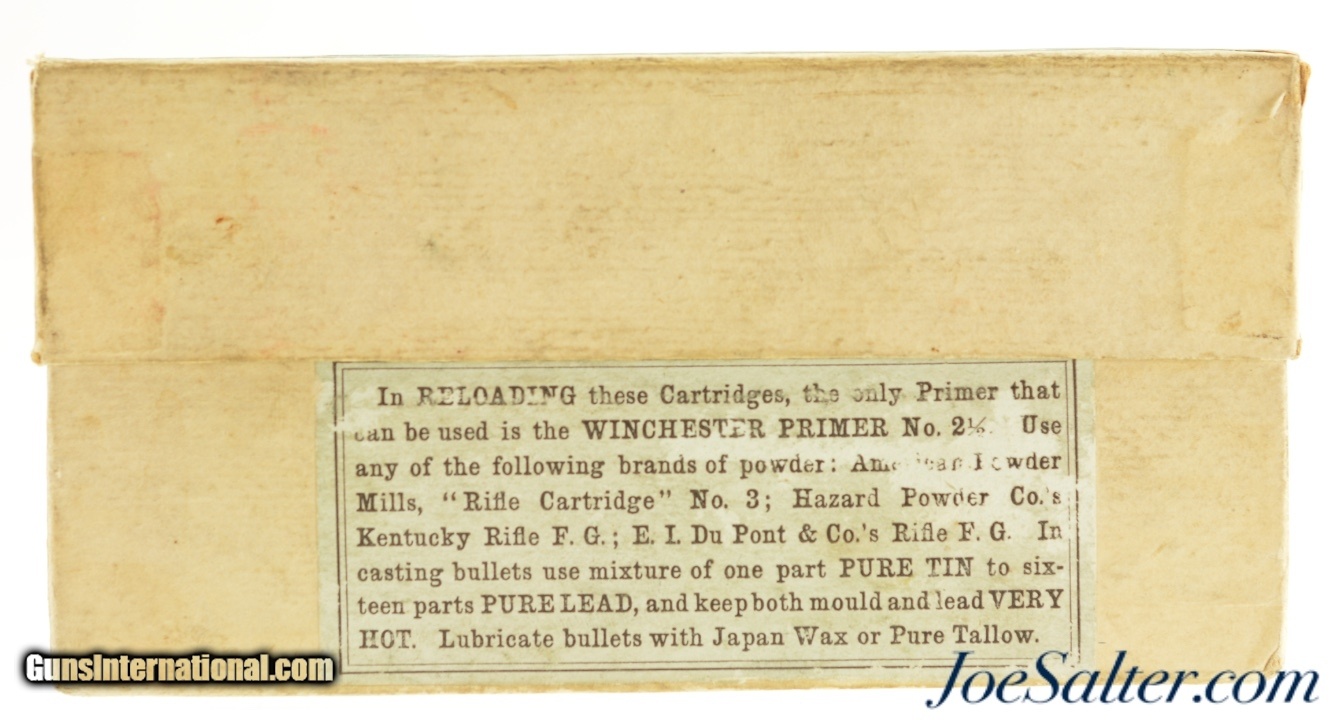 In RELOADING these Cartridges, the only Primer that
can be used is the WINCHESTER PRIMER No. 2½. Use
any of the following brands of powder: American Powder
Mills, “Rifle Cartridge” No. 3; Hazard Powder Co.'s
Kentucky Rifle F. G.; E. I. Du Pont & Co.'s Rifle F. G. In
casting bullets use mixture of one part PURE TIN to six-
teen parts PURE LEAD, and keep both mould and lead VERY
HOT. Lubricate bullets with Japan Wax or Pure Tallow.
GunsInternational.com
JoeSalter.com